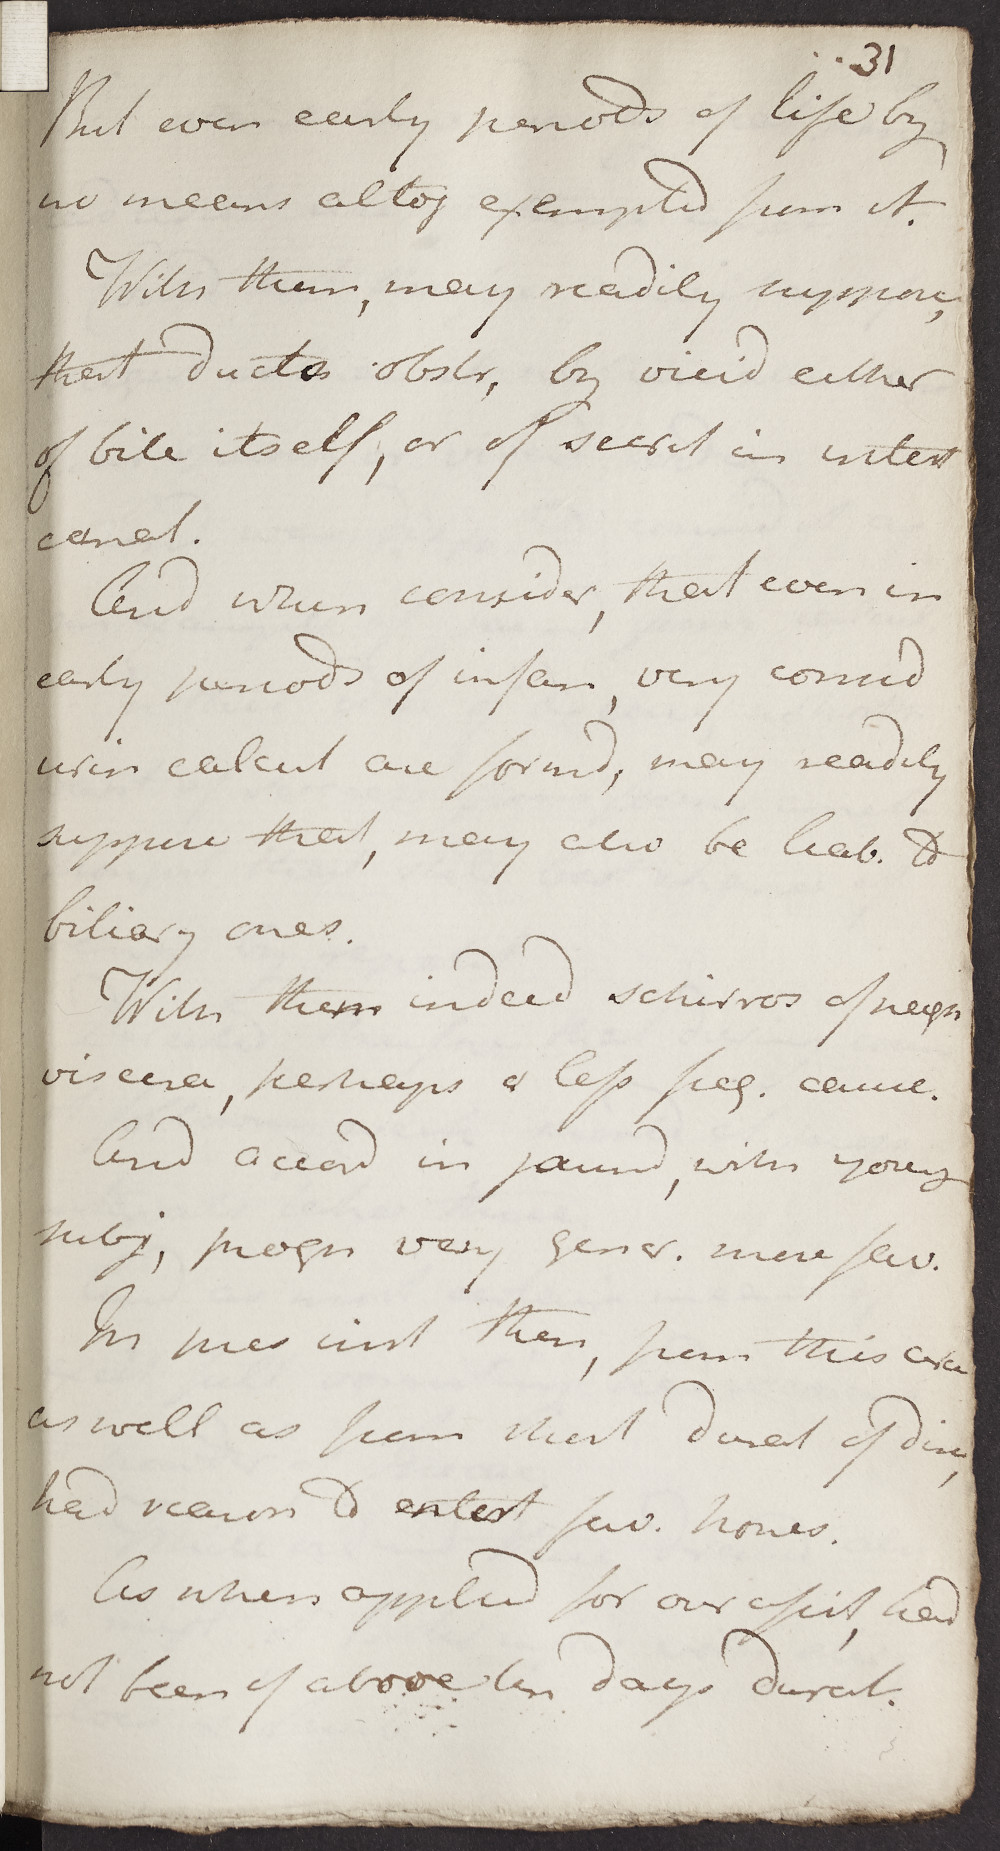 31
But even early periods of life by
no means altog exempted from it.
With them, may readily suppose,
that ducts obstr, by viscid either
of bile itself, or of secret in intest
canal.
And when consider, that even in
early periods of infan, very consid
urin calcul are formd, may readily
suppose that, may also be liab. to
biliary ones.
With them indeed schirros of neigh
viscera, perhaps a less freq. cause.
And accord in jaund, with young
subj, progn very gener. more fav.
In pres inst then, from this circ
as well as from short durat of dis,
had reason to entert fav. hopes.
As when applied for our assist, had
not been of above ten days durat.